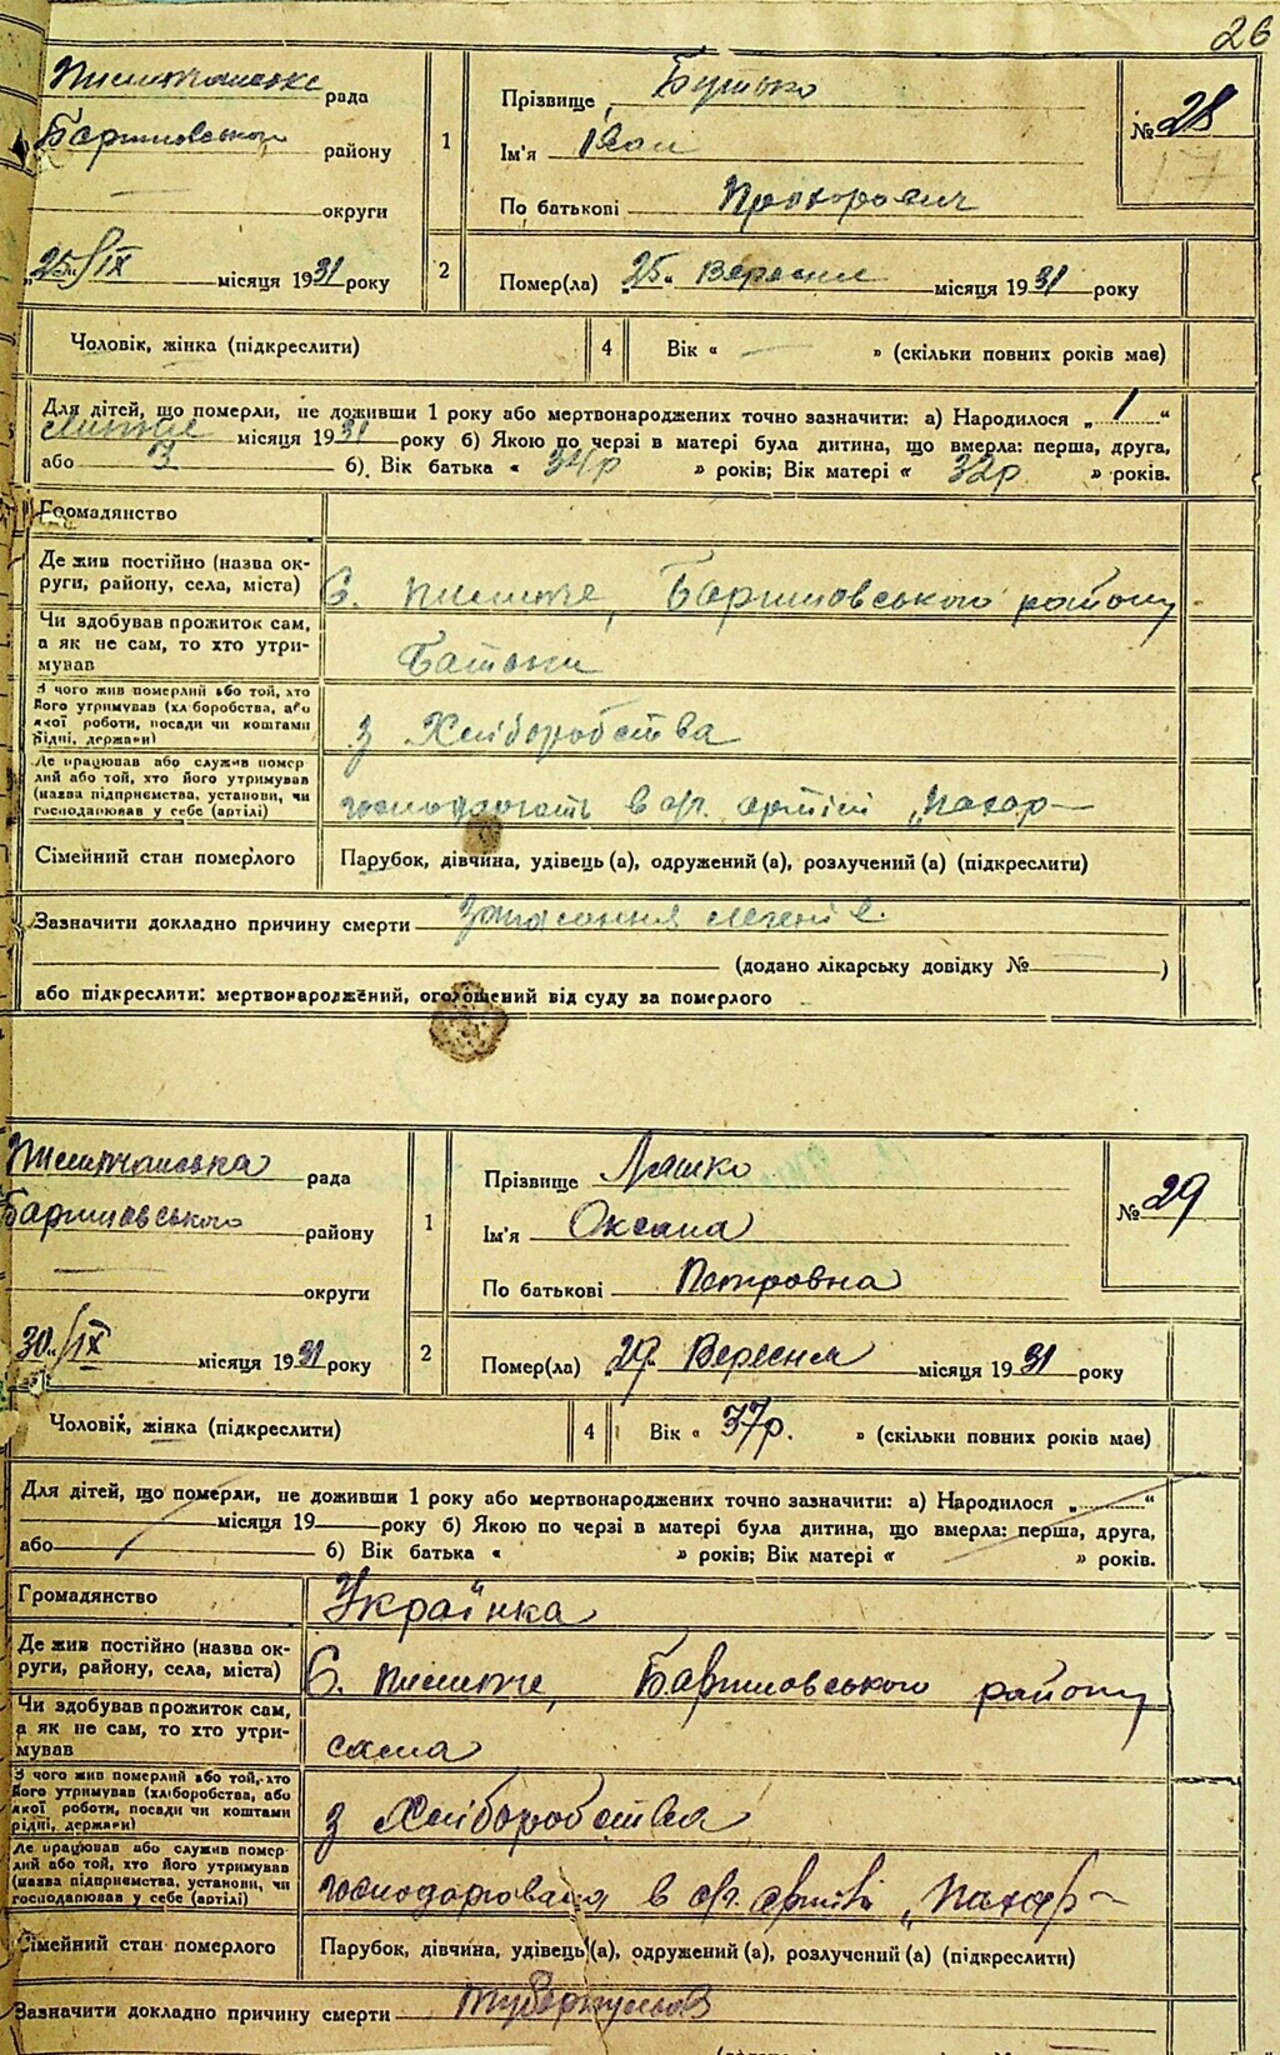 26
Пилипчанське рада
Баришовського району
округи
„25“/ІХ місяця 1931 року
1
Прізвище Бутько
Ім'я Іван
По батькові Прохорович
№ 28
17
2
Помер(ла) „25“ Вересня місяця 1931 року
Чоловік, жінка (підкреслити)
4
Вік « — » (скільки повних років має)
Для дітей, що померли, не доживши 1 року або мертвонароджених точно зазначити: а) Народилося „1“
місяця 1931 року б) Якою по черзі в матері була дитина, що вмерла: перша, друга,
або 3 б) Вік батька « 34р » років; Вік матері « 32р » років.
Громадянство
Де жив постійно (назва округи, району, села, міста)
С. Пилипче, Баришовського району
Чи здобував прожиток сам, а як не сам, то хто утримував
Батьки
З чого жив померлий або той, хто його утримував (хліборобства, або якої роботи, посади чи коштами рідні, держави)
з Хліборобства
Де працював або служив померлий або той, хто його утримував (назва підприємства, установи, чи господарював у себе (артілі)
господарюють в с/г. артілі „Пахар
Сімейний стан померлого
Парубок, дівчина, удівець (а), одружений (а), розлучений (а) (підкреслити)
Зазначити докладно причину смерти запалення легенів.
(додано лікарську довідку № )
або підкреслити: мертвонароджений, оголошений від суду за померлого
Пилипчанська рада
Баришовського району
округи
30“/ІХ місяця 1931 року
1
Прізвище Ляшко
Ім'я Оксана
По батькові Петровна
№ 29
2
Помер(ла) „29“ Вересня місяця 1931 року
Чоловік, жінка (підкреслити)
4
Вік « 37р. » (скільки повних років має)
Для дітей, що померли, не доживши 1 року або мертвонароджених точно зазначити: а) Народилося „ “
місяця 19 року б) Якою по черзі в матері була дитина, що вмерла: перша, друга,
або б) Вік батька « » років; Вік матері « » років.
Громадянство
Українка
Де жив постійно (назва округи, району, села, міста)
С. Пилипче, Баришовського району
Чи здобував прожиток сам, а як не сам, то хто утримував
сама
З чого жив померлий або той, хто його утримував (хліборобства, або якої роботи, посади чи коштами рідні, держави)
з Хліборобства
Де працював або служив померлий або той, хто його утримував (назва підприємства, установи, чи господарював у себе (артілі)
господарювала в с/г. артілі „Пахар
Сімейний стан померлого
Парубок, дівчина, удівець (а), одружений (а), розлучений (а) (підкреслити)
Зазначити докладно причину смерти туберкульоз